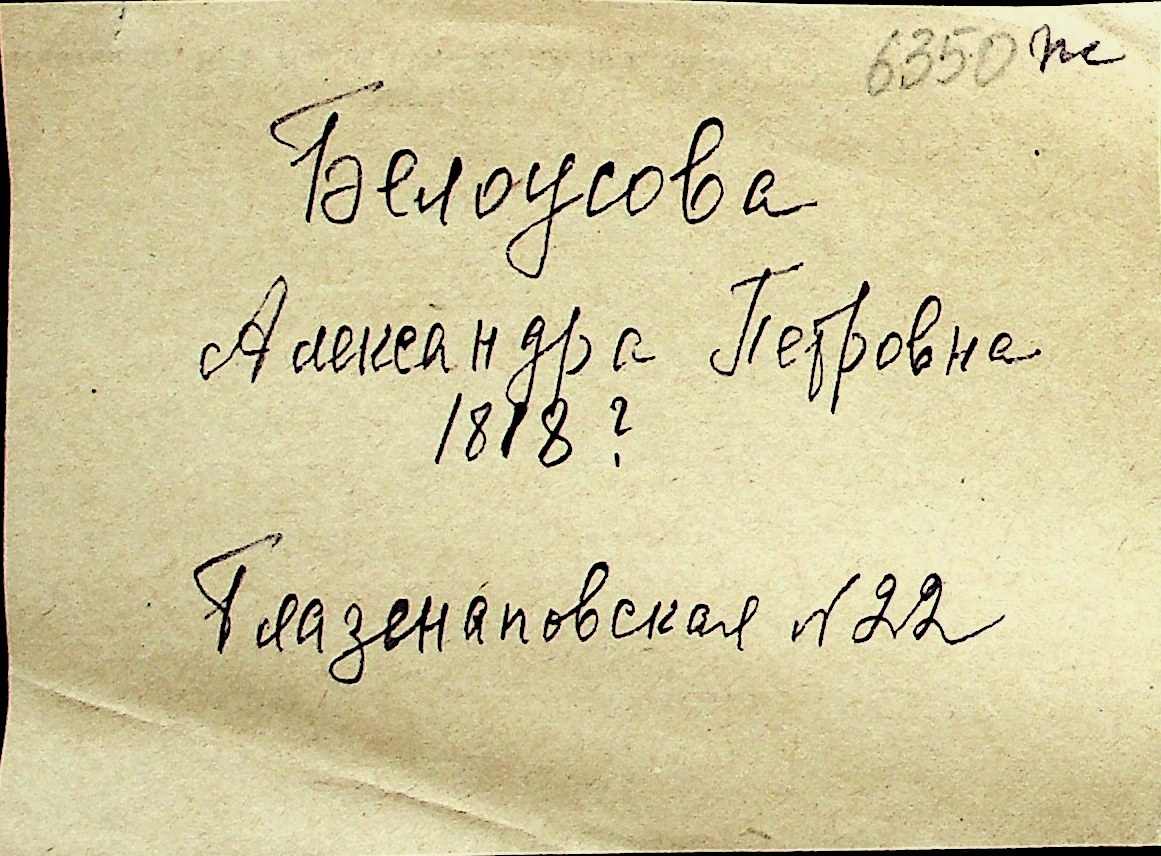 6350 ж
Белоусова
Александра Петровна
1818?
Глазенаповская №22